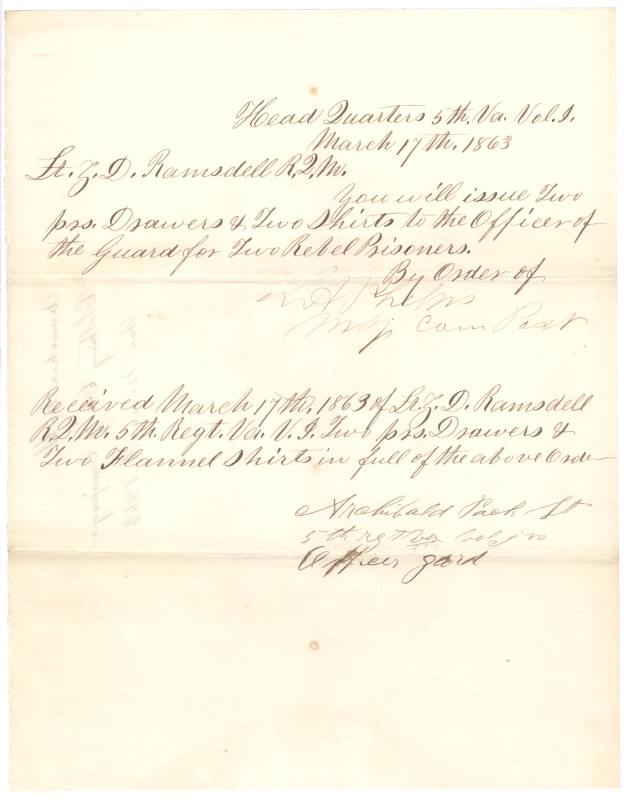 Head Quarters 5th. Va. Vol. I.
March 17th. 1863
Lt. Z. D. Ramsdell R.Q.M.
You will issue Two
prs. Drawers & Two Shirts to the Officer of
the Guard for Two Rebel Prisoners.
By Order of
L A Phelps
Maj Com Post
Received March 17th. 1863 of Lt. Z. D. Ramsdell
R.Q.M. 5th. Regt. Va. V. I. Two prs. Drawers &
Two Flannel Shirts in full of the above Order
Archibald Pack Lt
5th regt va
Officer gard